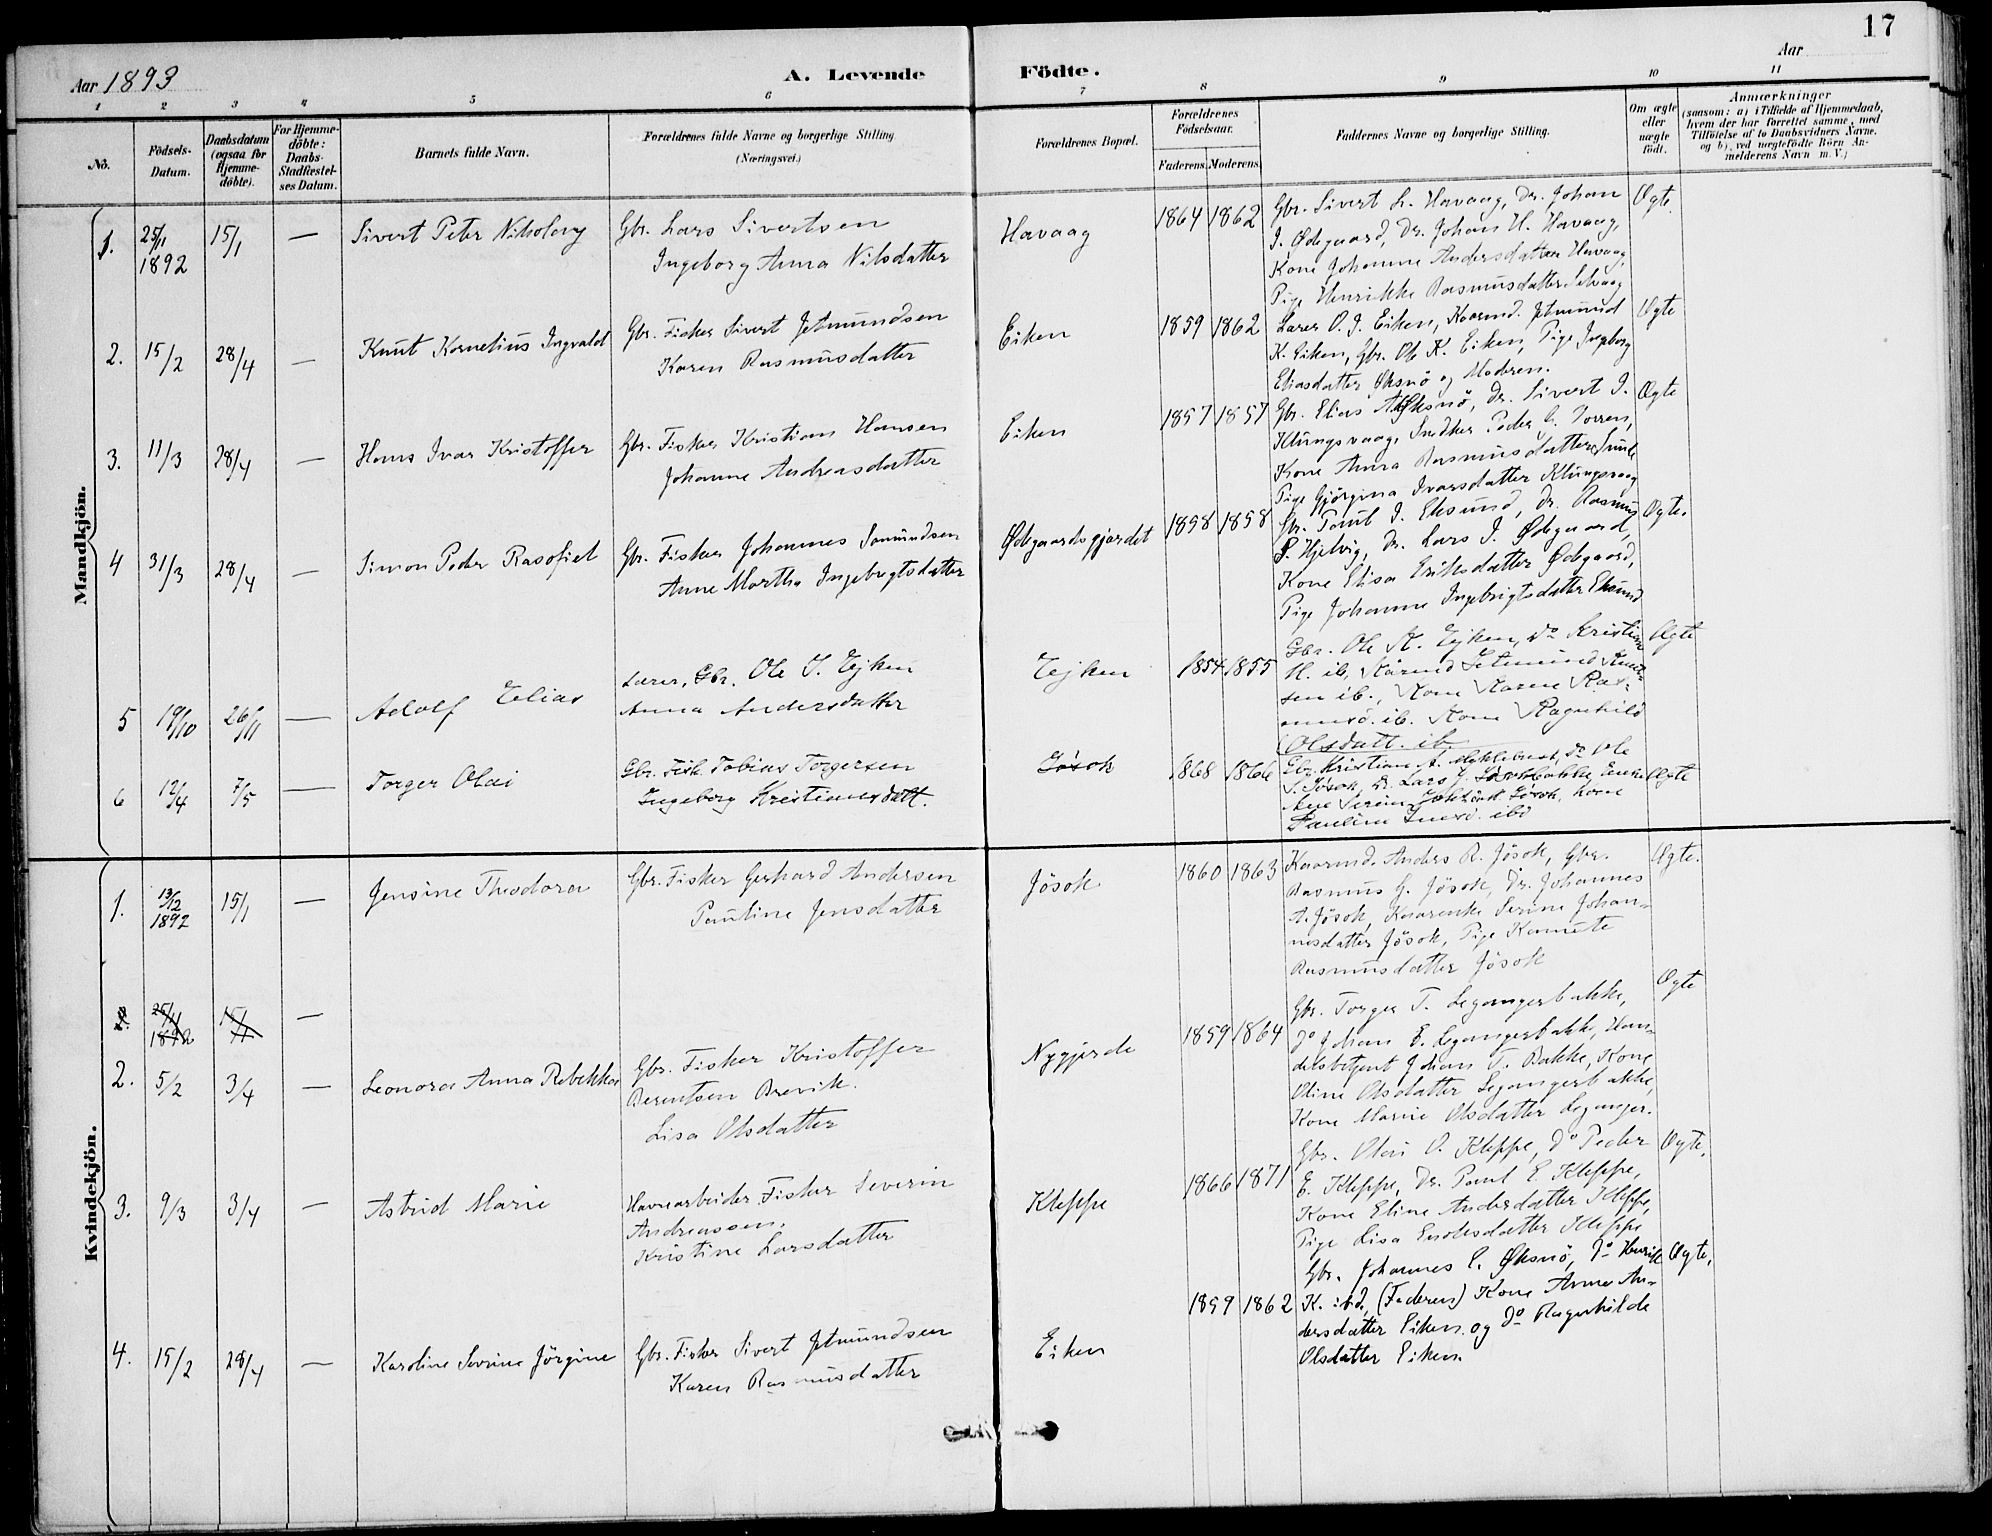 17
Aar 1893
A. Levende Födte.
Aar
1 2 3 4 5 6 7 8 9 10 11
No.
Födsels-Datum.
Daabsdatum (ogsaa for Hjemme-döbte).
For Hjemme-döbte: Daabs-Stadfæstel-ses Datum.
Barnets fulde Navn.
Forældrenes fulde Navne og borgerlige Stilling (Næringsvei.)
Forældrenes Bopæl.
Forældrenes Födselsaar.
Faderens Moderens
Faddernes Navne og borgerlige Stilling.
Om ægte eller uægte födt.
Anmærkninger
(saasom: a) i Tilfælde af Hjemmedaab,
hvem der har forrettet samme, med
Tilföielse af to Daabsvidners Navne.
og b), ved uægtefödte Börn An-
melderens Navn m. V.)
Mandkjön.
1. 25/11 1892 15/1 — Sivert Peter Nikolay
Gbr. Lars Sivertsen
Ingeborg Anna Nilsdatter
Havaag 1864 1862
Gbr. Sivert L. Havaag, Do. Johan
I. Ødegaard, Do. Johan H. Havaag,
Kone Johanne Andersdatter Havaag,
Pige Henrikke Rasmusdatter Selvaag
Ægte.
2. 15/2 28/4 — Knut Kornelius Ingvald
Gbr. Fisker Sivert Jetmundsen
Karen Rasmusdatter
Eiken 1859 1862
Lærer O. J. Eiken, Kaarmd. Jetmund
K. Eiken, Gbr. Ole K. Eiken, Pige Ingeborg
Eliasdatter Øksnö og Moderen.
Ægte
3. 11/3 28/4 — Hans Ivar Kristoffer
Gbr. Fisker Kristian Hansen
Johanne Andreasdatter
Eiken 1857 1857
Gbr. Elias A. Øksnö, Do. Sivert I.
Klungsvaag, Snedker Peder C. Vorren,
Kone Anna Rasmusdatter
Pige Gjörgina Ivarsdatter Klungsvaag
Ægte
4 31/3 28/4 — Simon Peder Rasofiel
Gbr. Fisker Johannes Samundsen
Anne Martha Ingebrigtsdatter
Ødegaardsgjærdet 1858 1858
Gbr. Paul I. Eksund, Do. Rasmus
P. Hjelvig, Do. Lars I. Ødegaard,
Kone Elisa Eriksdatter Ødegaard,
Pige Johanne Ingebrigtsdatter Eksund
Ægte.
5 19/10 26/11 — Adolf Elias
Lærer, Gbr. Ole J. Ejken
Anna Andersdatter
Eejken 1854 1855
Gbr. Ole K. Ejken, do Kristian
H. ib, Kårmd Jetmund Knut-
sen ib., Kone Karen Ras-
musd. ib. Kone Ragnhild
Olsdatt. ib.
Ægte
6 12/4 7/5 — Torger Olai
Gbr. Fisk. Tobias Torgersen
Ingeborg Kristiansdatt.
Jøsok 1868 1866
Gbr. Kristian A. Myklebust, do Ole
S. Jøsok, do. Lars J. Jøsokbakke, Enke
Ane Serine Jøsok, Kone
Pauline ibd
Ægte
Kvindekjön.
1. 13/12 1892 15/1 — Jensine Theodora
Gbr. Fisker Gerhard Andersen
Pauline Jensdatter
Jösok 1860 1863
Kaarmd. Anders R. Jösok, Gbr.
Rasmus G. Jösok, Do. Johannes
A. Jösok, Kaarenke Serine Johan-
nesdatter Jösok, Pige
Rasmusdatter Jösok
Ægte.
2. 25/11 1892 15/1 —
2. 5/2 3/4 — Leonora Anna Rebekka
Gbr. Fisker Kristoffer
Berentsen Brevik.
Lisa Olsdatter
Nygjerde 1859 1864
Gbr. Torger T. Legangerbakke,
Do Johan E. Legangerbakk, Han-
delsbetjent Johan T. Bakke, Kone
Oline Olsdatter Legangerbakke,
Kone Marie Olsdatter Leganger.
Ægte
3. 9/3 3/4 — Astrid Marie
Havnearbeider, Fisker Severin
Andreassen,
Kristine Larsdatter
Kleppe 1866 1871
Gbr. Olai O. Kleppe, Do Peder
E. Kleppe, Do. Paul E. Kleppe,
Kone Eline Andersdatter Kleppe,
Pige Lisa Endresdatter Kleppe
Ægte.
4. 15/2 28/4 — Karoline Severine Jörgine
Gbr. Fisker Sivert Jetmundsen
Karen Rasmusdatter
Eiken 1859 1862
Gbr. Johannes E. Øksnö, Do Henrik
K. ibd, (Faderen) Kone Anna An-
dersdatter Eiken og Do Ragnhilde
Olsdatter Eiken.
Ægte.